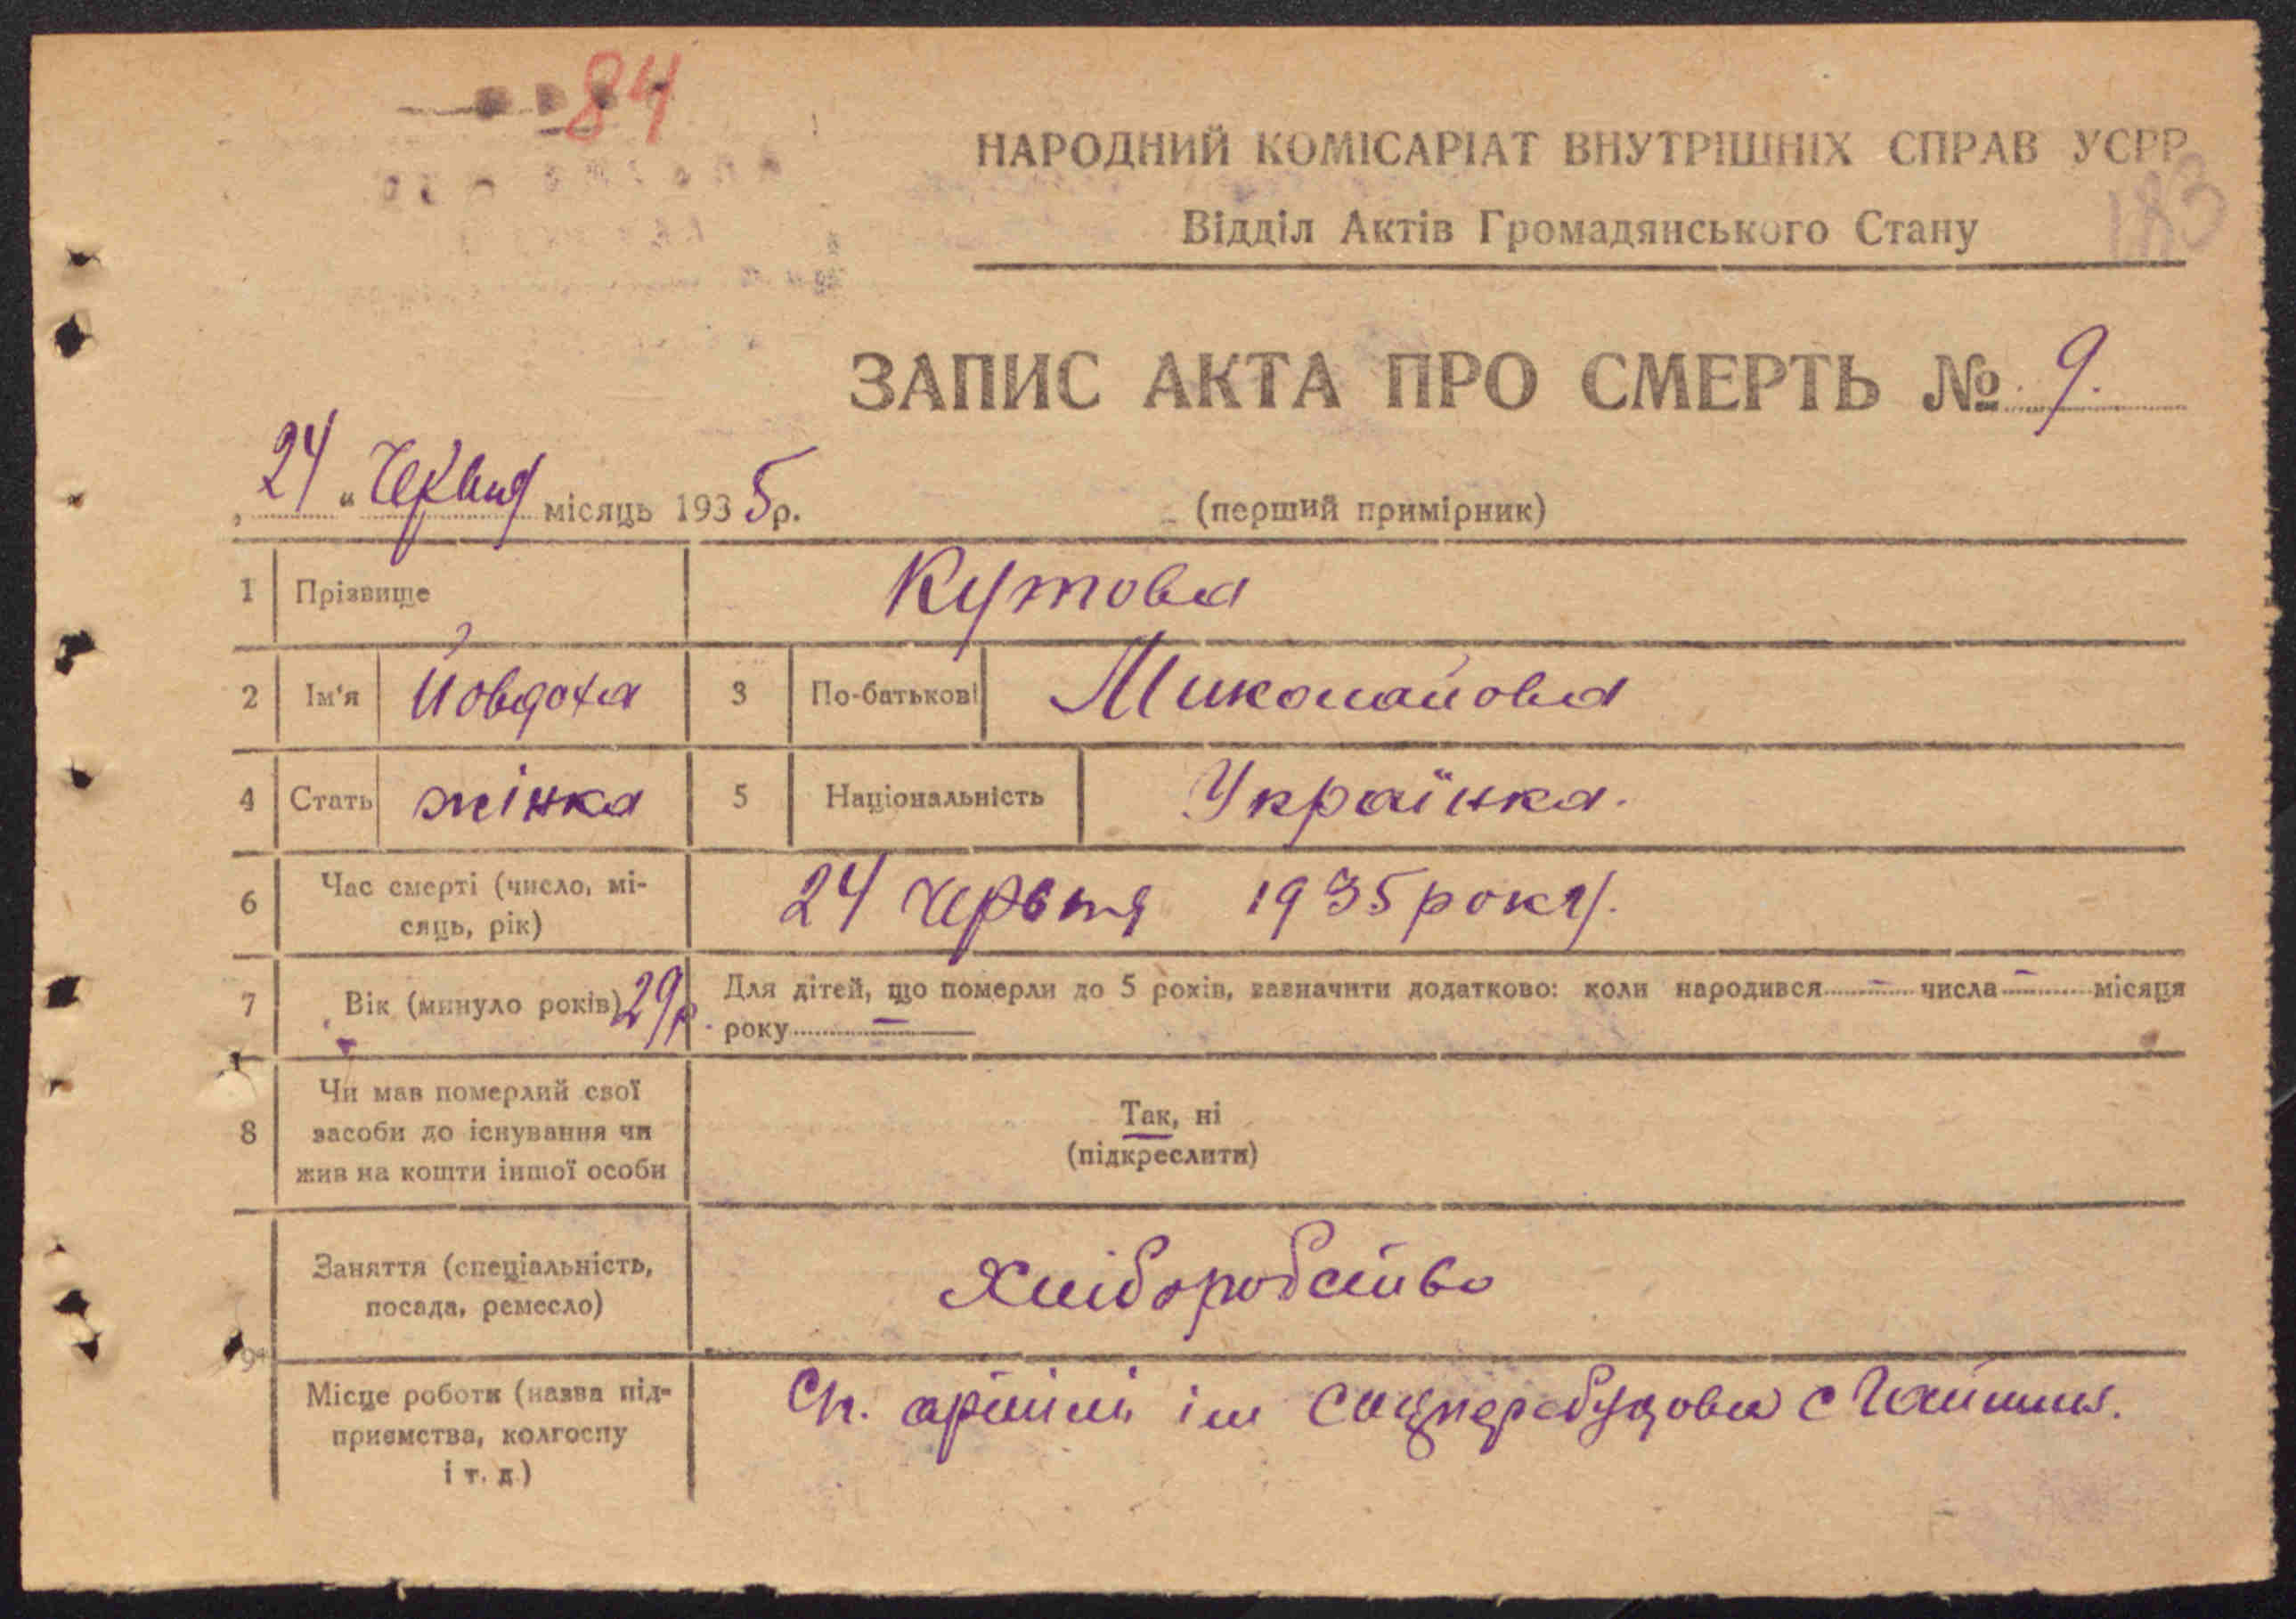 84
НАРОДНИЙ КОМІСАРІАТ ВНУТРІШНІХ СПРАВ УСРР
183
Відділ Актів Громадянського Стану
ЗАПИС АКТА ПРО СМЕРТЬ № 9.
„ 24 " Червня місяць 1935 р.
(перший примірник)
1 Прізвище Кутова
2 Ім'я Йовдоха 3 По-батькові Миколайовна
4 Стать жінка 5 Національність Українка.
6 Час смерті (число, мі-
сяць, рік) 24 червтя 1935 року.
7 Вік (минуло років) 29 р. Для дітей, що померли до 5 років, зазначити додатково: коли народився — числа — місяця
року —
8 Чи мав померлий свої
засоби до існування чи
жив на кошти іншої особи
Так, ні
(підкреслити)
9 Заняття (спеціальність,
посада, ремесло) Хліборобство
Місце роботи (назва під-
приємства, колгоспу
і т. д.)
Сп. артіль ім Соцперебудова с